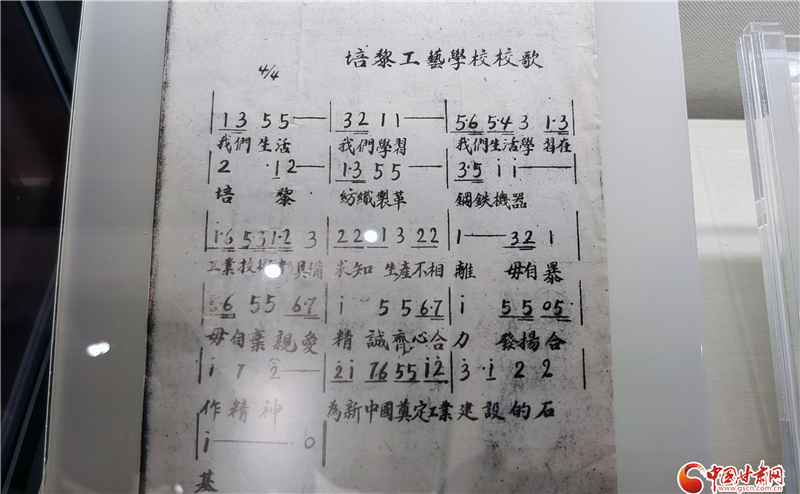 培黎工藝學校校歌
4/4
1 3 5 5 — 3 2 1 1 — 5·6 5·4 3 1·3
我們生活 我們學習 我們生活學習在
2 ·1 2 — 1·3 5 5 — 3·5 i i —
培黎 紡織製革 鋼鉄機器
1·6 5·3 1·2 3 2 2 ·1 3 2 2 1 — 3 2 1
工業技術都具備 求知生產不相離 毋自暴
5·6 5 5 6·7 i 5 5 6·7 i 5 5 0 5
毋自棄親愛精誠齊心合力 發揚合
i 7 2 — 2 i 7 6 5 5 i 2 3 ·i 2 2
作精神 為新中國奠定工業建設的石
i — 0
基
中国甘肃网
www.gscn.com.cn